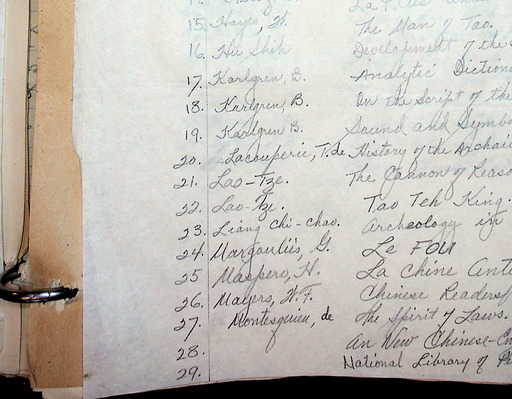 15. Hayes, H. The Man of Tao.
16. Hu Shih Development of the
17. Karlgren, B. Analytic Diction
18. Karlgren, B. On the Script of the
19. Karlgren B. Sound and Symbo
20. Lacouperie, T. de History of the Archaic
21. Lao-Tze. The Cannon of Reaso
22. Lao-Tze. Tao Teh King.
23. Liang Chi-Chao. Archeology in
24. Margouliès, G. Le Fou
25 Maspero, H. La Chine Anti
26. Mayers, W.F. Chinese Readers
27. Montesquieu, de The Spirit of Laws.
28. An New Chinese-En
29. National Library of